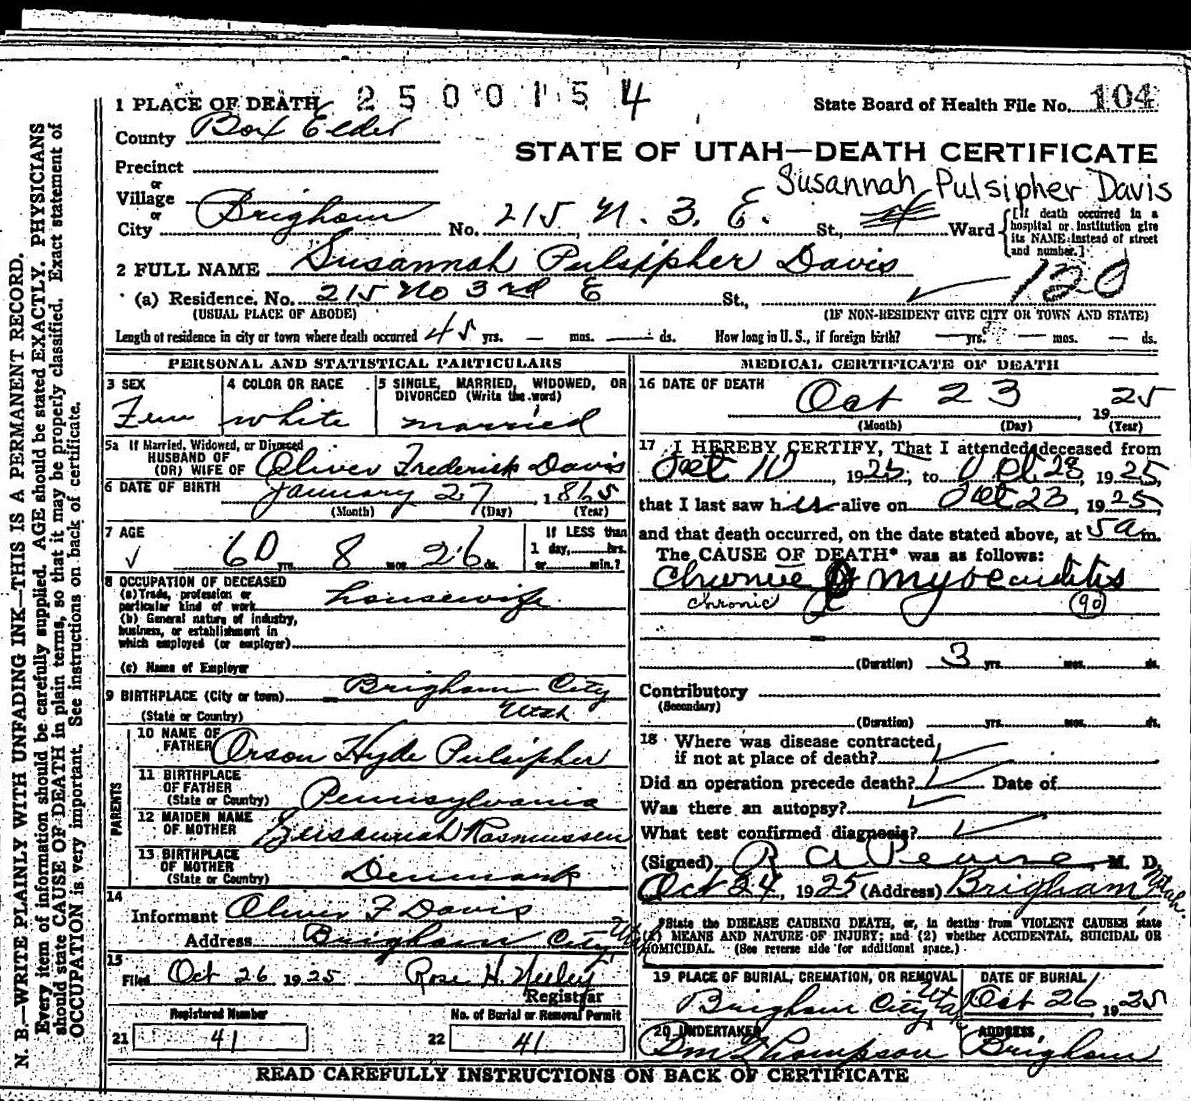 1 PLACE OF DEATH 2500154 State Board of Health File No. 104
County Box Elder
STATE OF UTAH—DEATH CERTIFICATE
Precinct
or
Susannah Pulsipher Davis
Village
or
City Brigham No. 215 N. 3. E. St., Ward
[If death occurred in a hospital or institution give its NAME instead of street and number.]
2 FULL NAME Susannah Pulsipher Davis
130
(a) Residence. No. 215 No 3rd E St.,
(USUAL PLACE OF ABODE) (IF NON-RESIDENT GIVE CITY OR TOWN AND STATE)
Length of residence in city or town where death occurred 45 yrs. — mos. — ds. How long in U. S., if foreign birth? — yrs. — mos. — ds.
PERSONAL AND STATISTICAL PARTICULARS
3 SEX 4 COLOR OR RACE 5 SINGLE, MARRIED, WIDOWED, OR DIVORCED (Write the word)
Fem white married
5a If Married, Widowed, or Divorced
HUSBAND OF
(OR) WIFE OF Oliver Frederick Davis
6 DATE OF BIRTH January 27 1865
(Month) (Day) (Year)
7 AGE If LESS than
60 yrs. 8 mos. 26 ds. 1 day,......hrs.
or......min.?
8 OCCUPATION OF DECEASED
(a) Trade, profession or
particular kind of work housewife
(b) General nature of industry,
business, or establishment in
which employed (or employer)
(c) Name of Employer
9 BIRTHPLACE (City or town) Brigham City
(State or Country) Utah
PARENTS
10 NAME OF
FATHER Orson Hyde Pulsipher
11 BIRTHPLACE
OF FATHER
(State or Country) Pennsylvania
12 MAIDEN NAME
OF MOTHER Rasmussen
13 BIRTHPLACE
OF MOTHER
(State or Country) Denmark
14
Informant Oliver F Davis
Address Brigham City Utah
15
Filed Oct 26 1925 Rose H. Neeley
Registrar
Registered Number No. of Burial or Removal Permit
21 41 22 41
MEDICAL CERTIFICATE OF DEATH
16 DATE OF DEATH Oct 23, 1925
(Month) (Day) (Year)
17 I HEREBY CERTIFY, That I attended deceased from
Oct 10, 1925, to Oct 23, 1925,
that I last saw her alive on Oct 23, 1925
and that death occurred, on the date stated above, at 5 a m.
The CAUSE OF DEATH* was as follows:
Chronic myocarditis
chronic 90
(Duration) 3 yrs. mos. ds.
Contributory
(Secondary)
(Duration) yrs. mos. ds.
18 Where was disease contracted
if not at place of death?
Did an operation precede death? Date of
Was there an autopsy?
What test confirmed diagnosis?
(Signed) M. D.
Oct 24, 1925 (Address) Brigham, Utah.
*State the DISEASE CAUSING DEATH, or, in deaths from VIOLENT CAUSES state
(1) MEANS AND NATURE OF INJURY; and (2) whether ACCIDENTAL, SUICIDAL OR
HOMICIDAL. (See reverse side for additional space.)
19 PLACE OF BURIAL, CREMATION, OR REMOVAL DATE OF BURIAL
Brigham City Utah Oct 26, 1925
20 UNDERTAKER ADDRESS
Thompson Brigham
READ CAREFULLY INSTRUCTIONS ON BACK OF CERTIFICATE
N. B.—WRITE PLAINLY WITH UNFADING INK—THIS IS A PERMANENT RECORD.
Every item of information should be carefully supplied. AGE should be stated EXACTLY. PHYSICIANS
should state CAUSE OF DEATH in plain terms, so that it may be properly classified. Exact statement of
OCCUPATION is very important. See instructions on back of certificate.